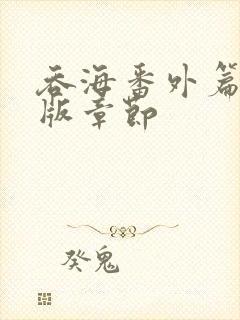 吞海番外篇
版章节
癸鬼